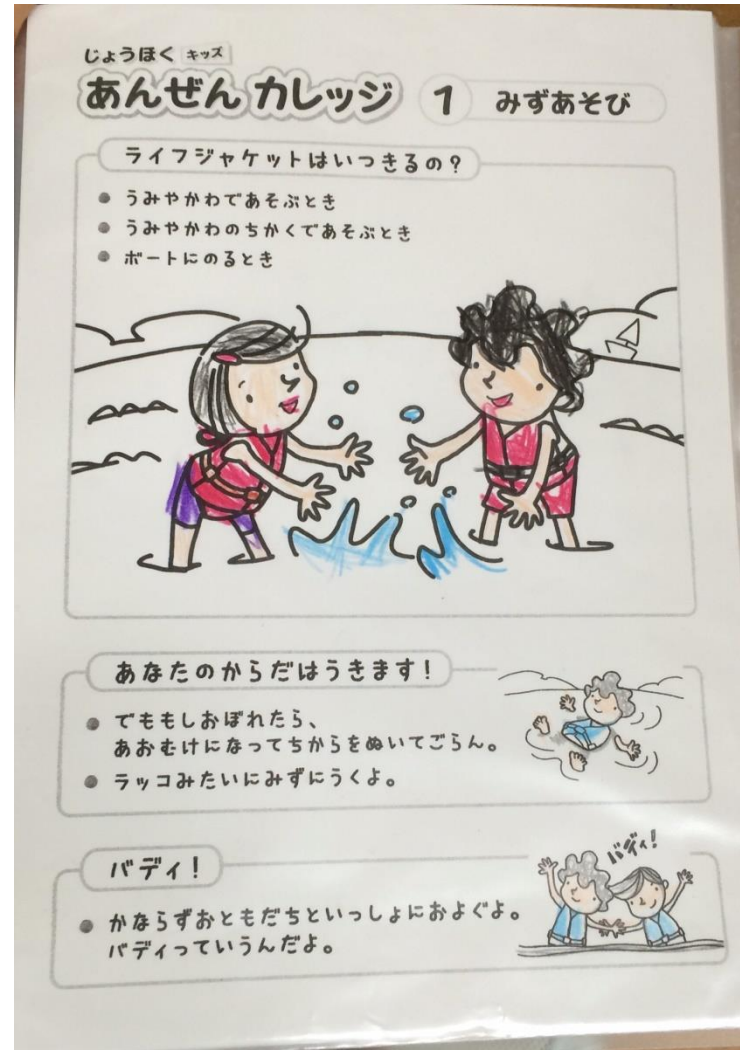 じょうほく キッズ
あんぜん カレッジ 1 みずあそび
ライフジャケットはいつきるの？
● うみやかわであそぶとき
● うみやかわのちかくであそぶとき
● ボートにのるとき
あなたのからだはうきます！
● でももしおぼれたら、
あおむけになってちからをぬいてごらん。
● ラッコみたいにみずにうくよ。
バディ！
バディ！
● かならずおともだちといっしょにおよぐよ。
バディっていうんだよ。